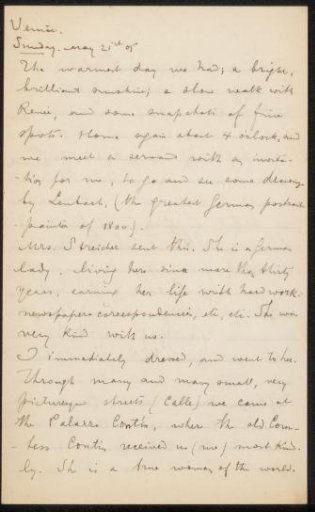 Venice.
Sunday. May 21st 05
The warmest day we had; a bright,
brilliant sunshine; a slow walk with
Renée, and some snapshots of fine
spots. Home again about 4 o'clock, and
we meet a servant with an invita-
-tion for me, to go and see some drawings
by Lenbach, (the greatest German portrait
painter of 1800).
Mrs. Streicher sent this. She is a German
lady, living here since more than thirty
years, earning her life with hard work.
newspapers correspondencies, etc, etc. She was
very kind with us.
I immediately dressed, and went to her.
Through many and many small, very
picturesque streets (Calle) we came at
the Palazzo Contin, where the old Coun-
-tess Contin received us (me) most kind-
ly. Sh is a true woman of the world.